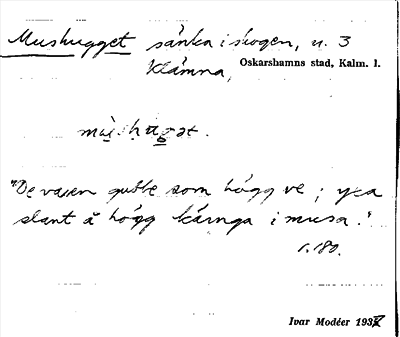 Mushugget sänka i skogen, n. 3
klämna, Oskarshamns stad, Kalm. l.
mùshugət.
"De varen gubbe som högg ve; yxa
slant å högg kärnga i musa."
s. 180.
Ivar Modéer 193